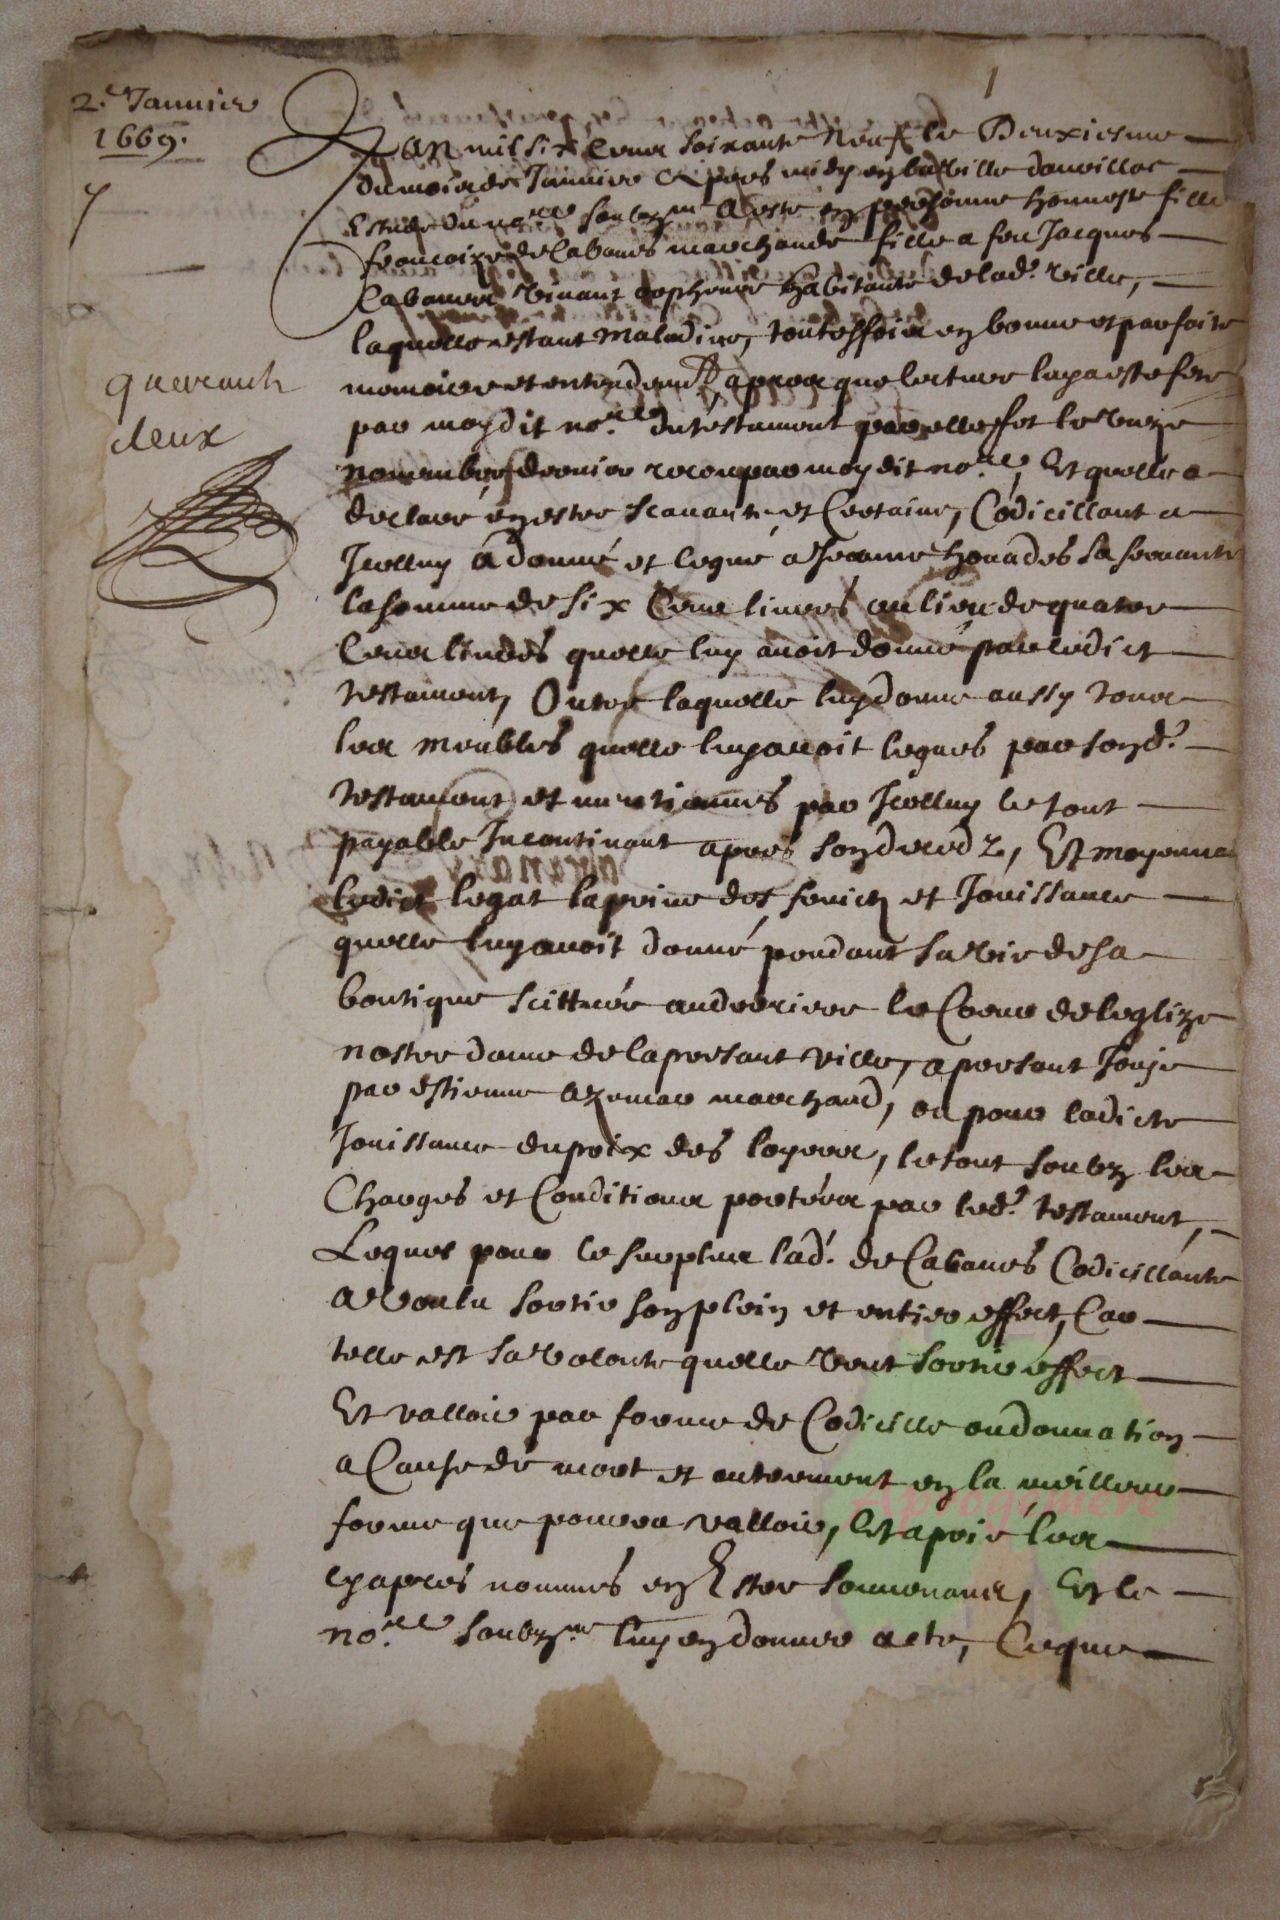 1
2.e Januier
1669.
Lan mil six cens soixante neuf le Deuxiesme
du mois de Januier apres midy en la ville daurillac
Estude du no.re soubz.né a esté en personne honneste fille
francoize de Cabanes marchande fille a feu Jacques
Cabanes viuant habitante de lad.e ville,
laquelle estant maladiue, touteffois en bonne et parfaite
quarante
memoire et entendem.t, apres que lecture luy a esté fete
deux
par moydit no.re du testament par elle fet le unze
nouembre dernier receu par moy dit no.re, Et quelle a
declaré en estre scauante et Certaine, Codicillant a
Icelluy a donné et legué a Jeanne houades sa seruante
la somme de six Cens liures au lieu de quatre
Cens liures quelle luy auoit donné par ledict
testament, Outre laquelle luy donne aussy tous
les meubles quelle luy auoit legués par sond.t
testament et mentionnes par Icelluy le tout
payable Incontinant apres son decedz, Et moyenna
ledict legat la priue des fruictz et Jouissance
quelle luy auoit donné pendant sa vie de sa
boutique scittuée au derriere le Coeur de leglize
nostre dame de la presant ville, a presant Jouye
par estienne azemar marchand, ou pour ladicte
Jouissance du prix des loyers, le tout soubz les
Charges et Conditions portées par led.t testament,
Lequel pour le surplus lad.e de Cabanes Codicillante
a voulu sortir son plein et entier effect, Car
telle est sa volonte quelle veut sortir effect
Et valloir par forme de Codicille ou donnation
a Cause de mort et autrement en la meilleure
forme que pourra valloir, Et a prié les
cy apres nommés en Estre souuenans, Et le
no.re soubz.né luy en donner acte, Ce que
Aprogemere